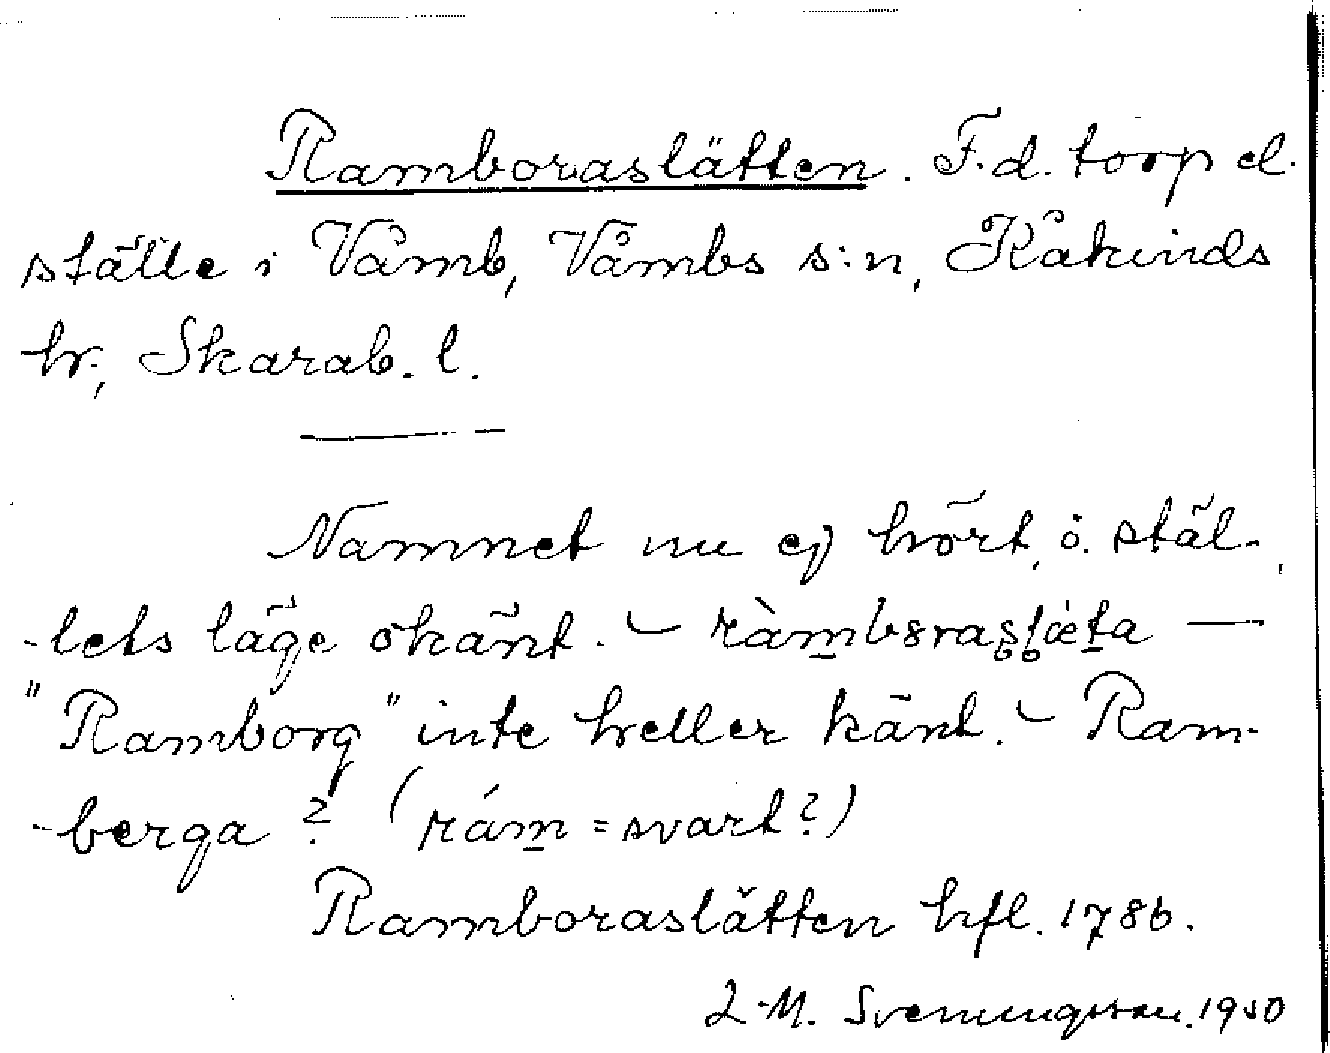 Ramboraslätten. F.d. torp el.
ställe i Våmb, Våmbs s:n, Kåkinds
hr., Skarab. l.
Namnet nu ej hört, o. stäl-
-lets läge okänt. –
"Ramborg" inte heller känt. – Ram-
-berga? (rám = svart?)
Ramboraslätten hfl. 1786.
L-M. Svenungsson. 1950